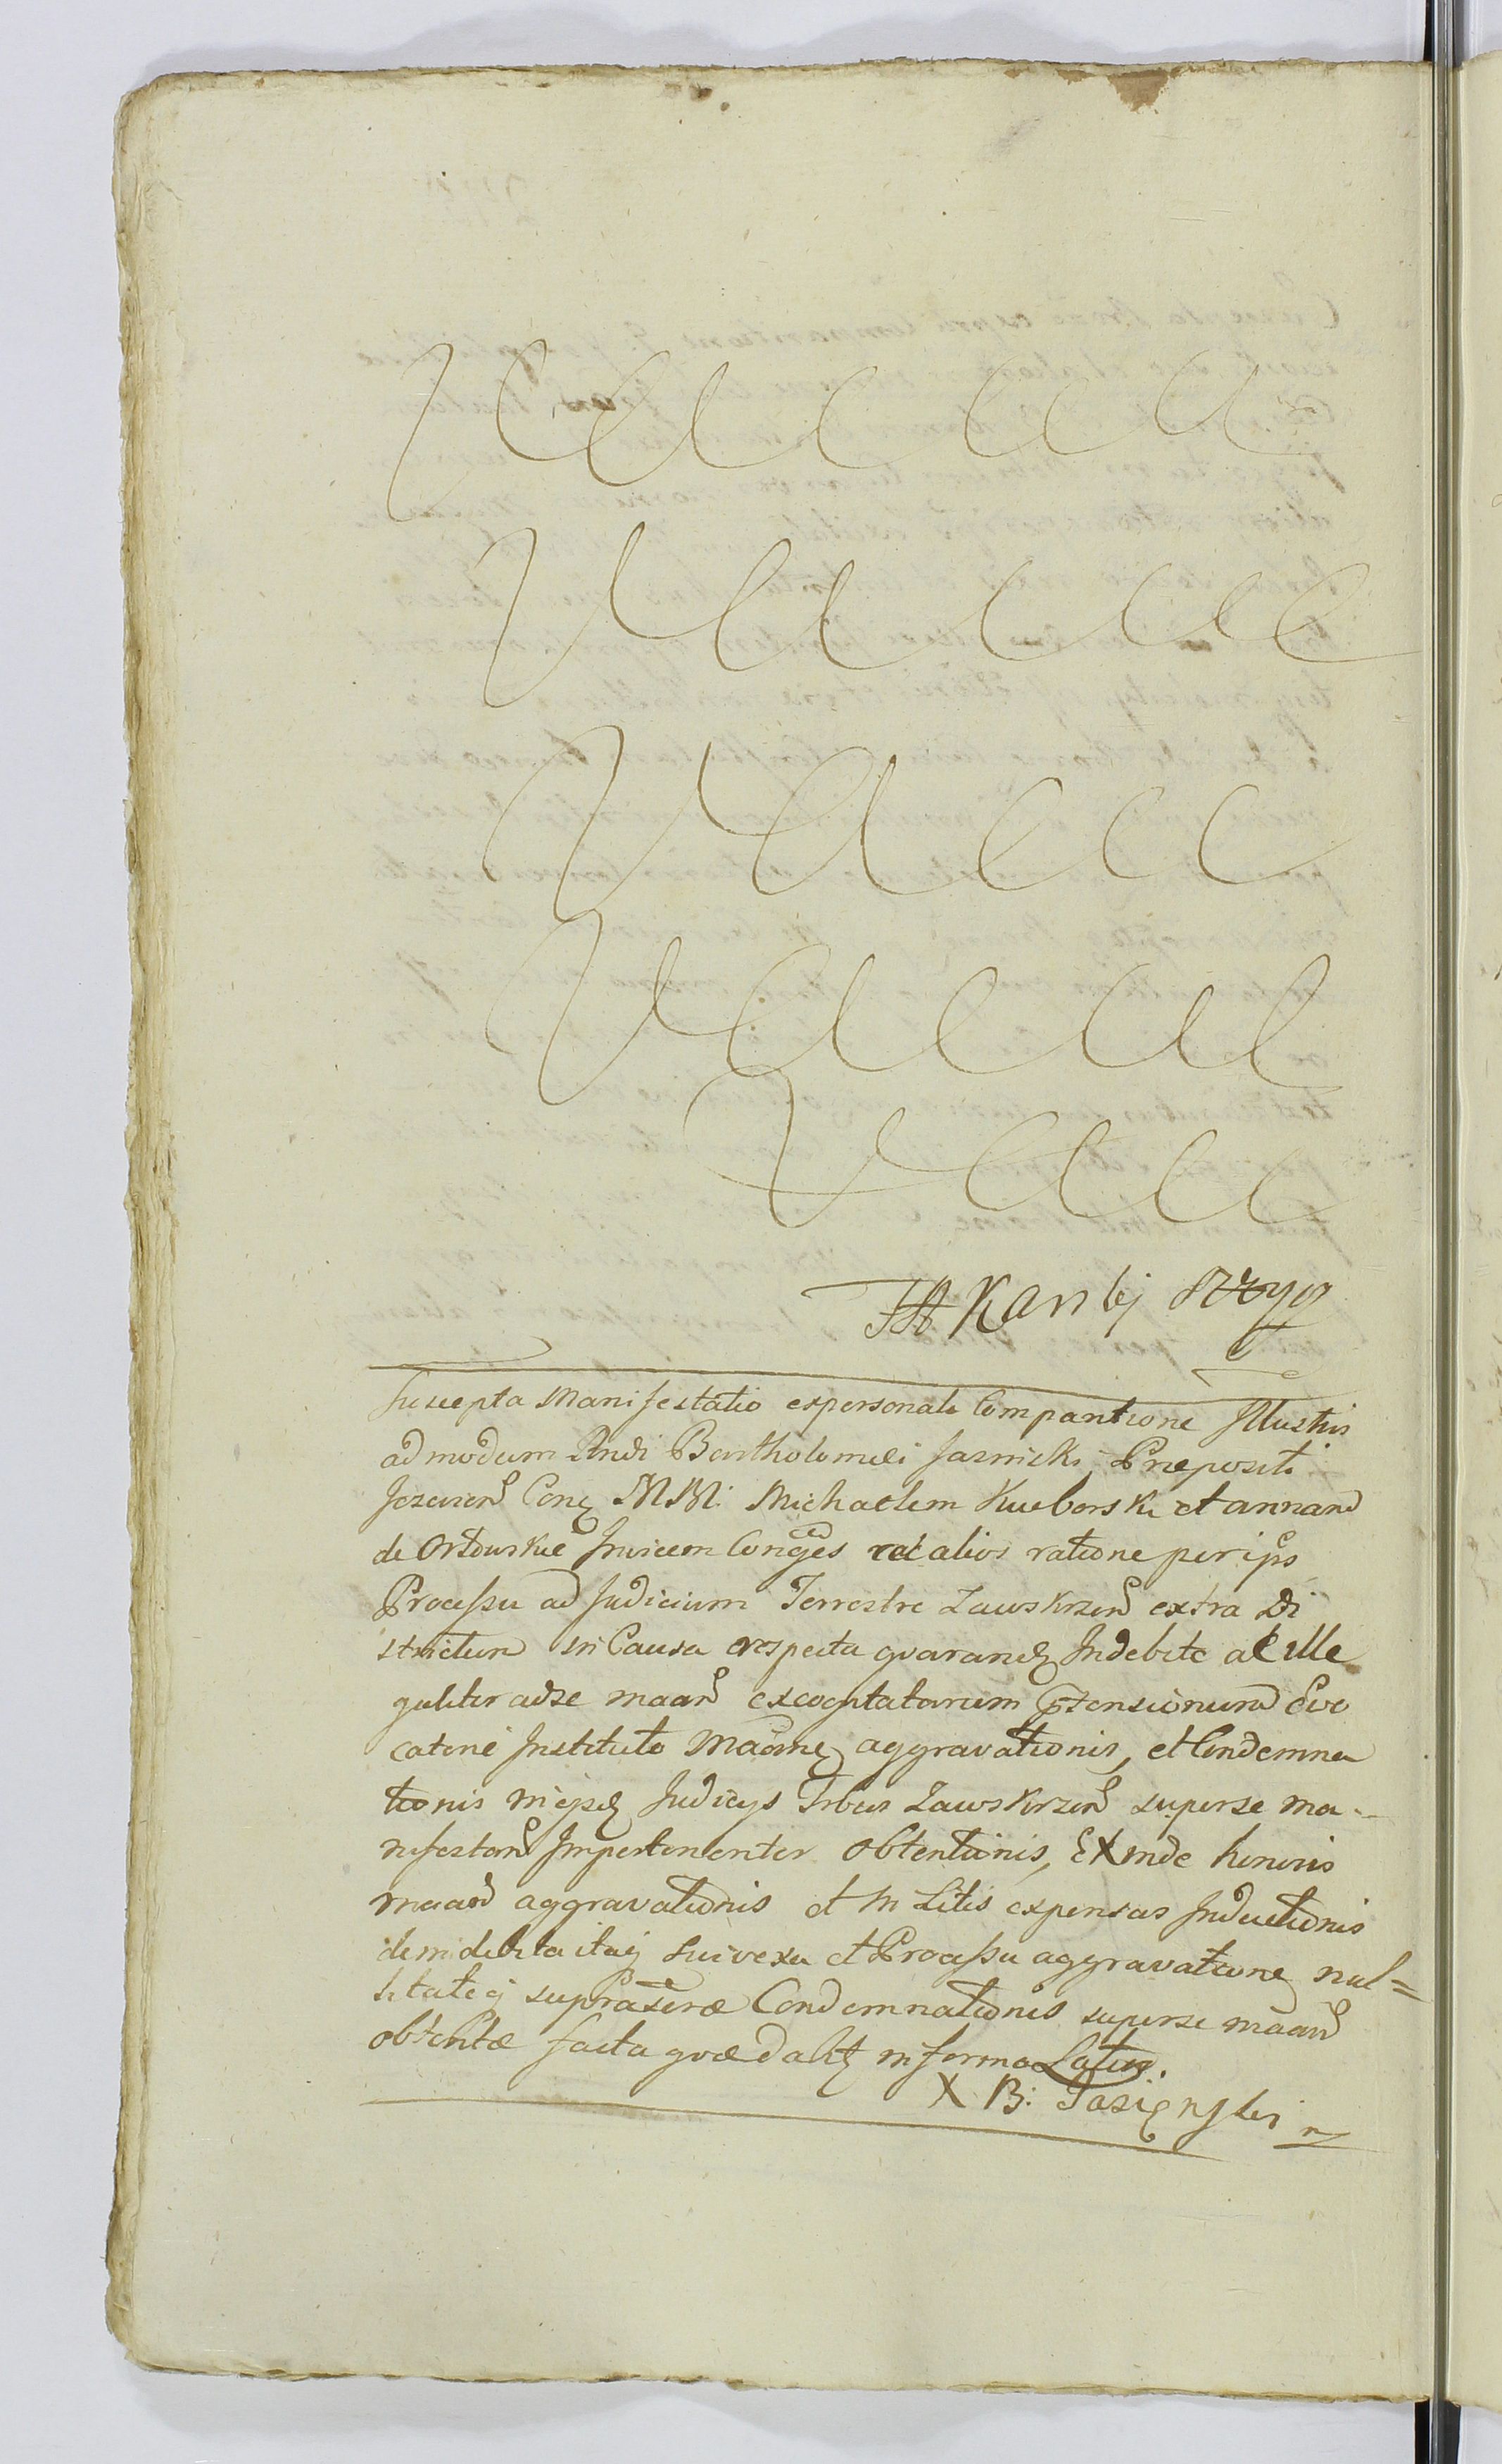 Suscepta Manifestatio expersonali Comparitione Illustris
admodum Rndi Bartholomei Jasinski Præpositi
Jezavien Conq MM: Michaelem Kucborski et annam
de Orłowskie Invicem Conges et alios ratione per ipso
Processu ad Judicium Terrestre Zawskrzen extra Di
strictum in Causa respectu qvarund Indebite ac ille
galiter adse maan excogitatarum Ptensionum Evo
catione Instituto Maōnq aggravationis, et Condemna
tionis in ejsd Judicys Tribus Zawskrzen superse ma-
nifestan Impertinenter obtentionis, Exinde honoris
maan aggravationis et in Litis expensas Inductionis
de indebita itaq sui vexa et Processu aggravatione nul=
litateq supraseræ Condemnationis superse maan
obtentæ facta qvæ dabit in forma Latiori.
X B: Jasięnski